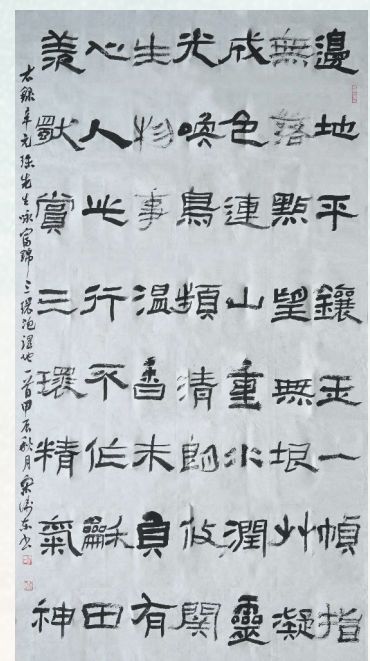 邊地平鑲玉一幀指
無落點望無垠艸凝
成色連山重水潤靈
光喚鳥頻清朗攸關
生物事溫馨未負有
心人此行不作龢田
羨獨賞三環精氣神
右錄元先生咏富錦三環泡濕地一首甲辰秋月東書